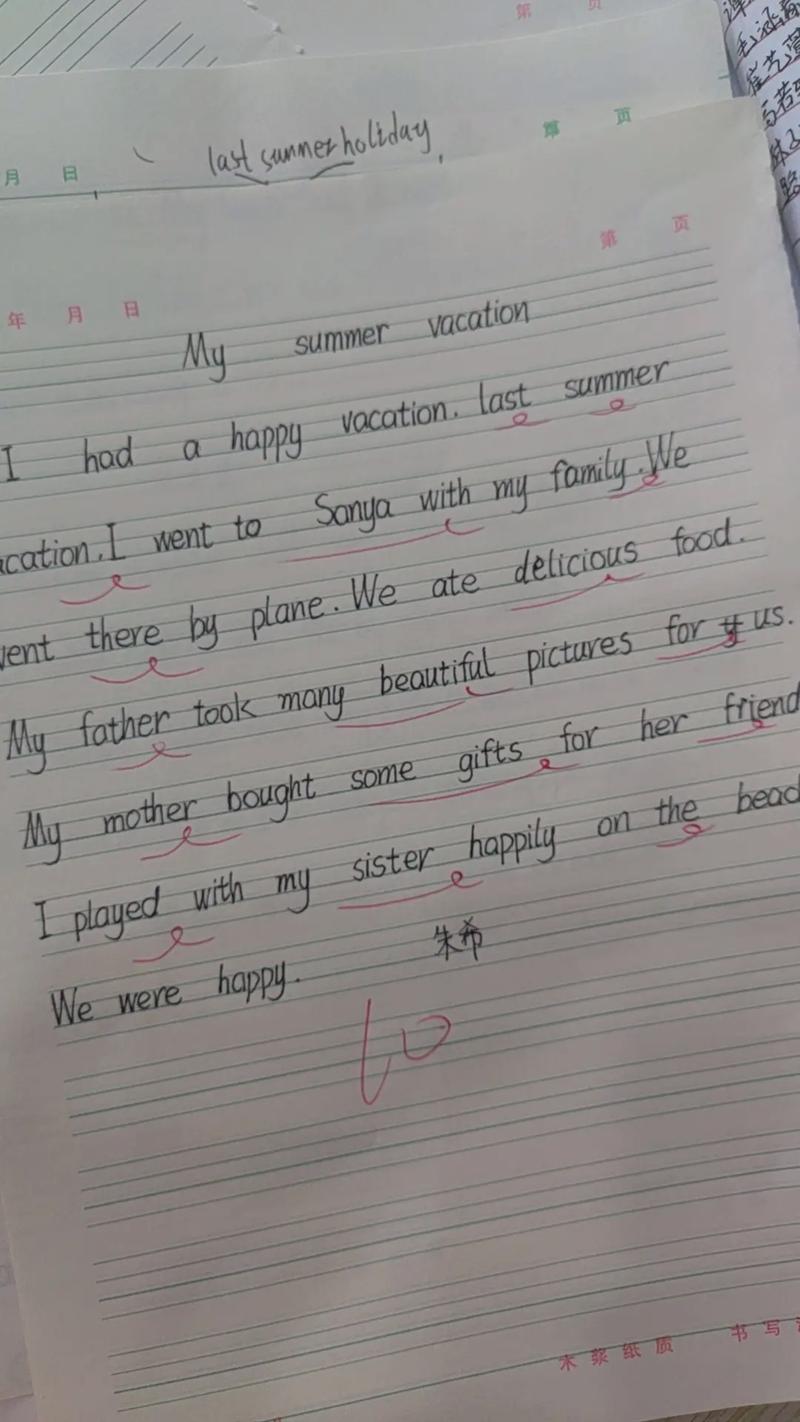 第 页
月 日 last summer holiday, 章 页
第 页
年 月 日
My summer vacation
I had a happy vacation. last summer
acation. I went to Sanya with my family. We
went there by plane. We ate delicious food.
My father took many beautiful pictures for us.
My mother bought some gifts for her friend
I played with my sister happily on the beac
We were happy. 朱希
10
木浆纸质 书写